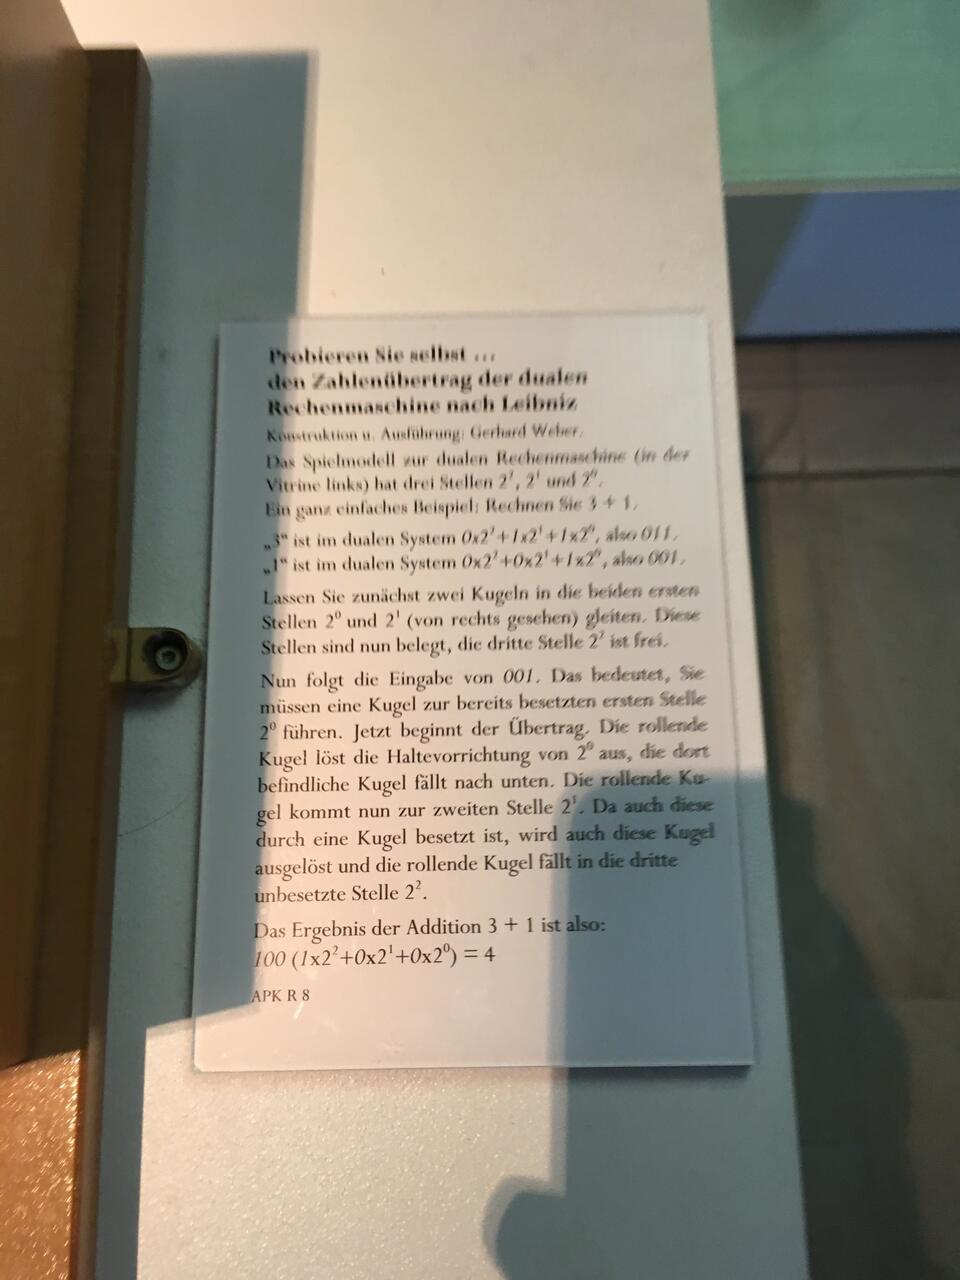 Probieren Sie selbst ...
den Zahlenübertrag der dualen
Rechenmaschine nach Leibniz
Konstruktion u. Ausführung: Gerhard Weber.
Das Spielmodell zur dualen Rechenmaschine (in der
Vitrine links) hat drei Stellen 2², 2¹ und 2⁰.
Ein ganz einfaches Beispiel: Rechnen Sie 3 + 1.
„3“ ist im dualen System 0x2²+1x2¹+1x2⁰, also 011.
„1“ ist im dualen System 0x2²+0x2¹+1x2⁰, also 001.
Lassen Sie zunächst zwei Kugeln in die beiden ersten
Stellen 2⁰ und 2¹ (von rechts gesehen) gleiten. Diese
Stellen sind nun belegt, die dritte Stelle 2² ist frei.
Nun folgt die Eingabe von 001. Das bedeutet, Sie
müssen eine Kugel zur bereits besetzten ersten Stelle
2⁰ führen. Jetzt beginnt der Übertrag. Die rollende
Kugel löst die Haltevorrichtung von 2⁰ aus, die dort
befindliche Kugel fällt nach unten. Die rollende Ku-
gel kommt nun zur zweiten Stelle 2¹. Da auch diese
durch eine Kugel besetzt ist, wird auch diese Kugel
ausgelöst und die rollende Kugel fällt in die dritte
unbesetzte Stelle 2².
Das Ergebnis der Addition 3 + 1 ist also:
100 (1x2²+0x2¹+0x2⁰) = 4
APK R 8